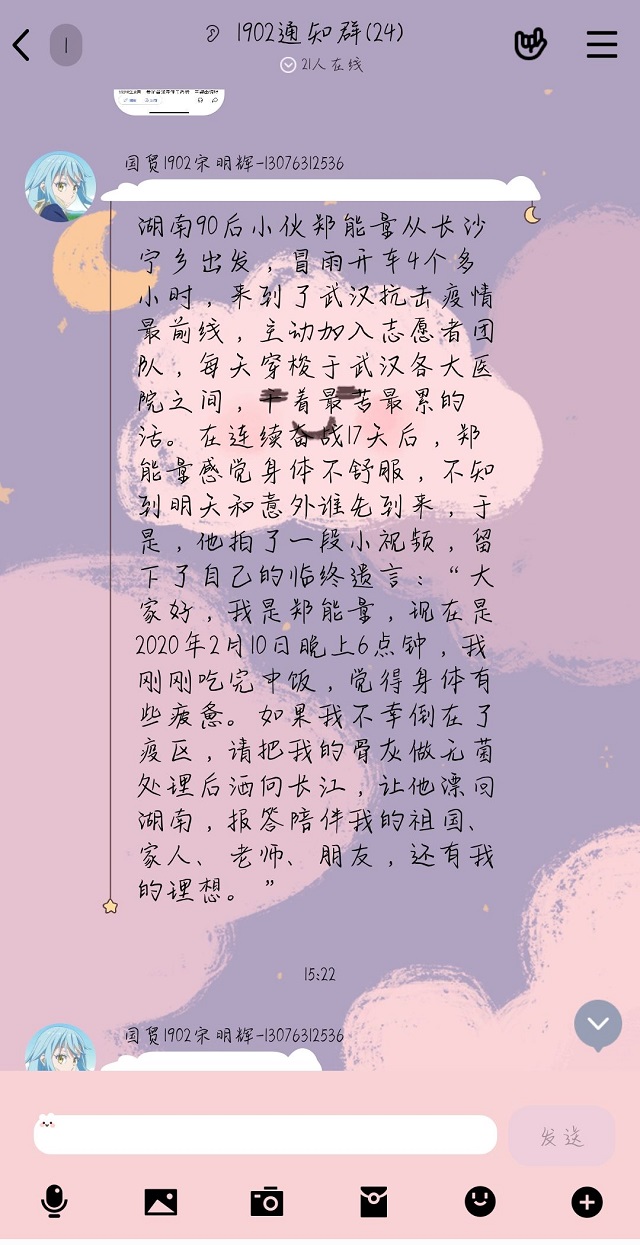 1
1902通知群(24)
21人在线
国贸1902宋明辉-13076312536
湖南90后小伙郑能量从长沙
宁乡出发，冒雨开车4个多
小时，来到了武汉抗击疫情
最前线，主动加入志愿者团
队，每天穿梭于武汉各大医
院之间，干着最苦最累的
活。在连续奋战17天后，郑
能量感觉身体不舒服，不知
到明天和意外谁先到来，于
是，他拍了一段小视频，留
下了自己的临终遗言：“大
家好，我是郑能量，现在是
2020年2月10日晚上6点钟，我
刚刚吃完中饭，觉得身体有
些疲惫。如果我不幸倒在了
疫区，请把我的骨灰做无菌
处理后洒向长江，让他漂回
湖南，报答陪伴我的祖国、
家人、老师、朋友，还有我
的理想。”
15:22
国贸1902宋明辉-13076312536
发送